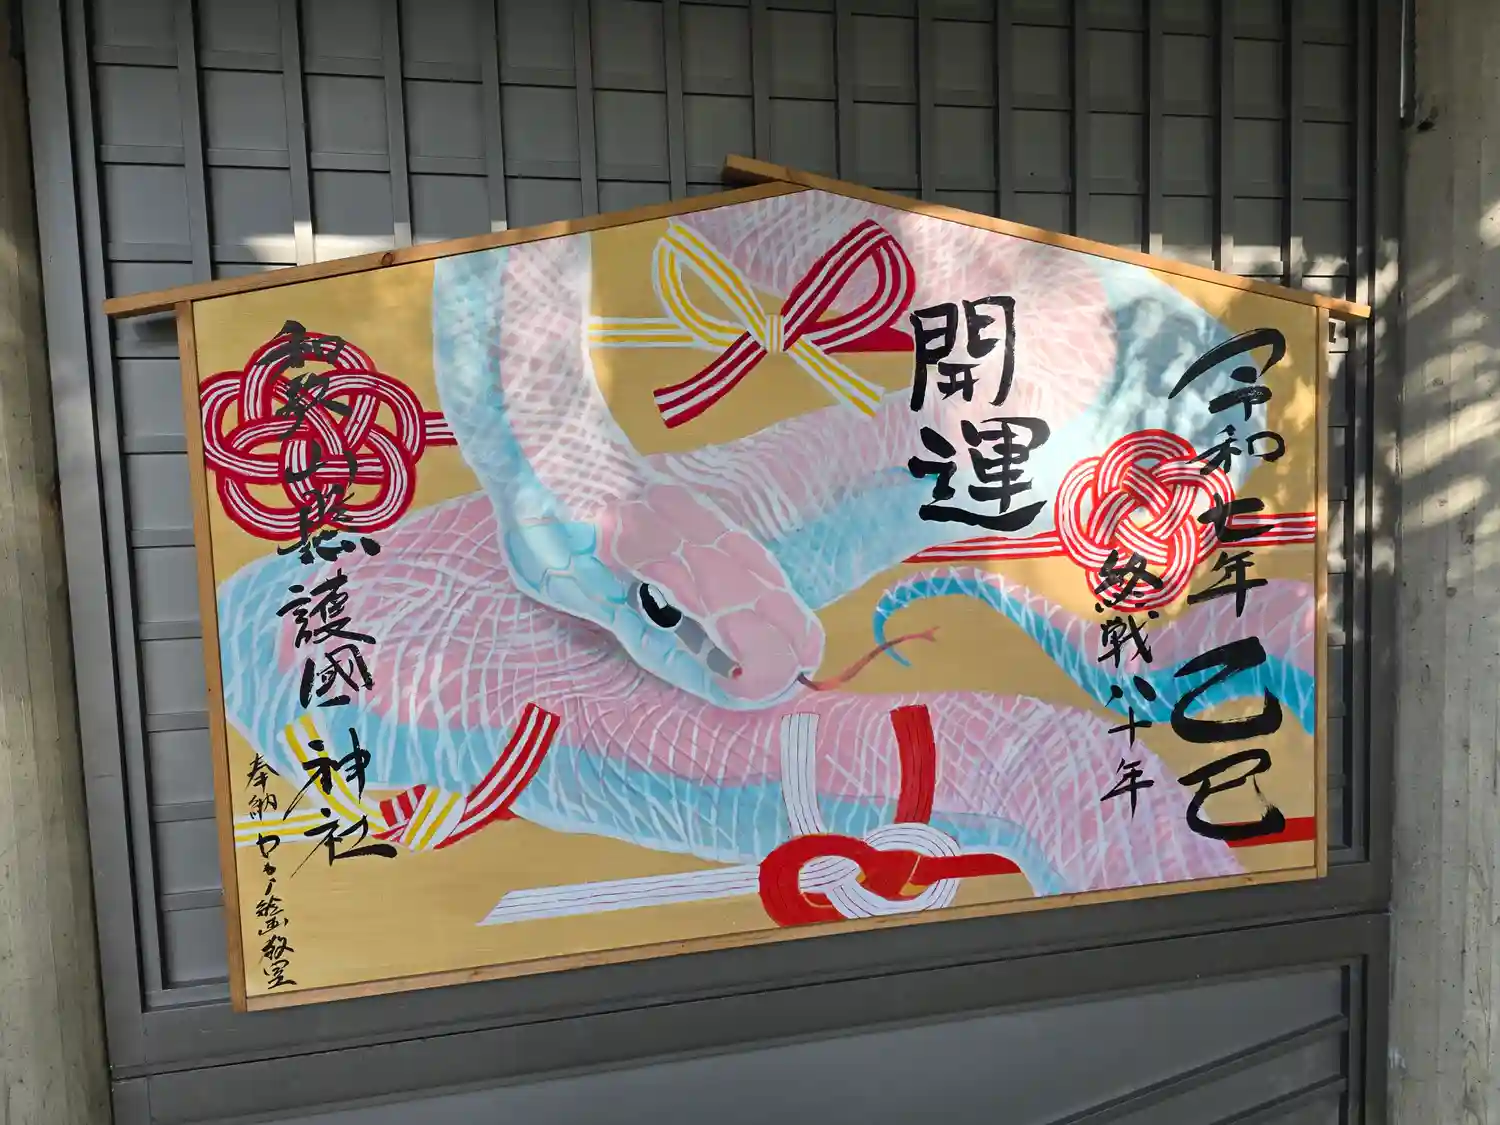 令和七年 乙巳
終戦八十年
開運
和歌山縣護國神社
奉納 ワカノ絵画教室